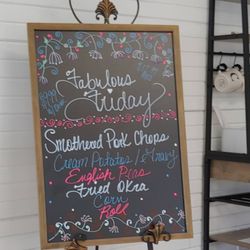 Fabulous
Friday
Smothered Pork Chops
Cream Potatoes / Gravy
English Peas
Fried Okra
Corn
Roll